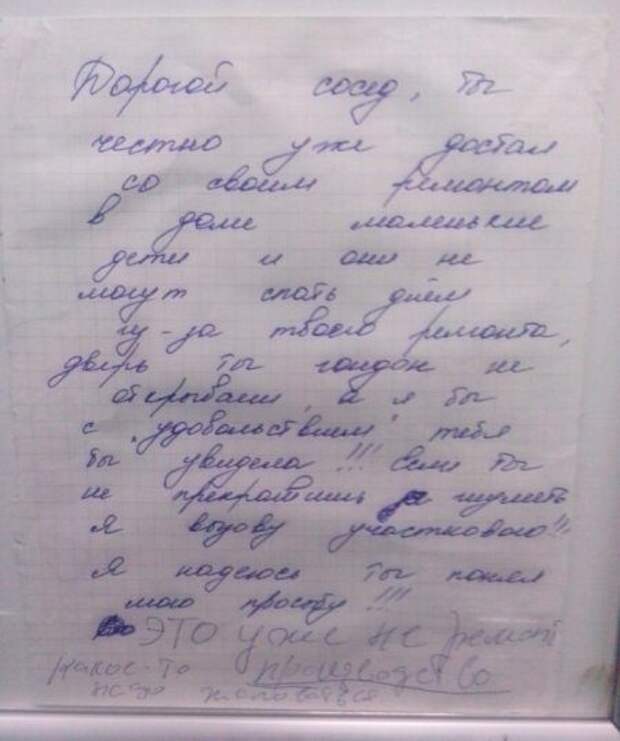 Дорогой сосед, ты
честно уже достал
со своим ремонтом
в доме маленькие
дети и они не
могут спать днём
из-за твоего ремонта,
дверь ты гондон не
открываеш, а я бы
с "удовольствием" тебя
бы увидела!!! Если ты
не прекратишь шуметь
я вызову участкового!!!
Я надеюсь ты понял
мою просьбу!!!
ЭТО уже не ремонт
какое-то производство
надо жаловаться